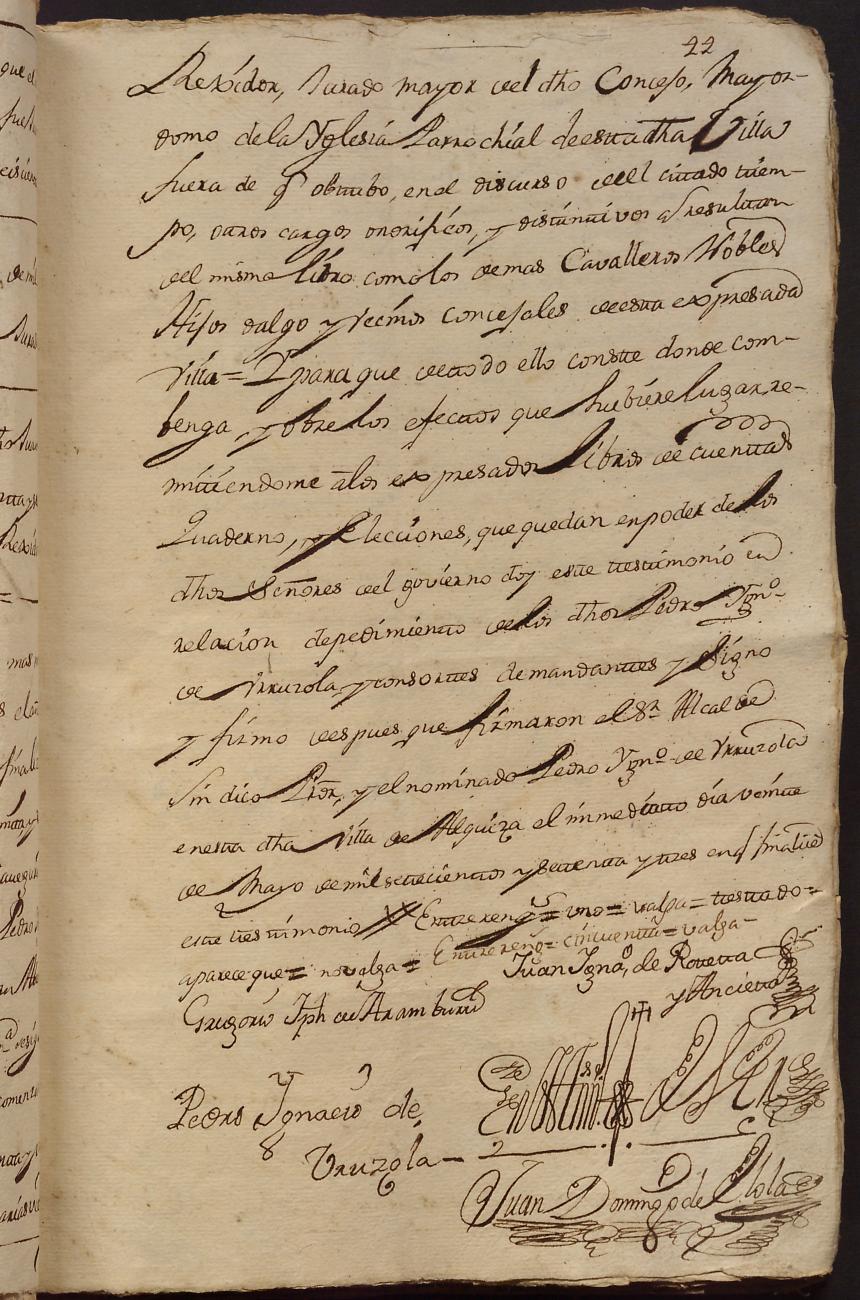 22
Rexidor, Jurado mayor del dho Concejo, Mayor-
domo de la Yglesia Parrochial de esta dha Villa
fuera de q obtubo, en el discurso del citado tiem-
po, otros cargos onorificos, y distintivos q resultan
del mismo libro como los demas Cavalleros Nobles
Hijos dalgo y vecinos concejales de esta expresada
Villa = Y para que de todo ello conste donde com-
benga, y obre los efectos que hubiere lugar, re-
mitiendome a los expresados libros de cuentas
Quaderno, y Elecciones, que quedan en poder de los
dhos Señores del govierno doy este testimonio en
relacion de pedimiento de los dhos Pedro Ygno
de Yruzola, y consortes demandantes y signo
y firmo despues que firmaron el Sr Alcalde
Sindico Pror, y el nominado Pedro Ygno de Yrruzola
en esta dha Villa de Alquiza el inmediato dia veinte
de Mayo de mil setecientos y setenta y tres en q finalice
este testimonio Entrereng = uno = valga = testado =
aparece que = no valga = Entrereng = cincuenta = valga -
Juan Igno, de Roteta
y Ancieta
Gregorio Jph de Aramburu
Pedro Ygnacio de
Uruzola
Juan Domingo de Elola